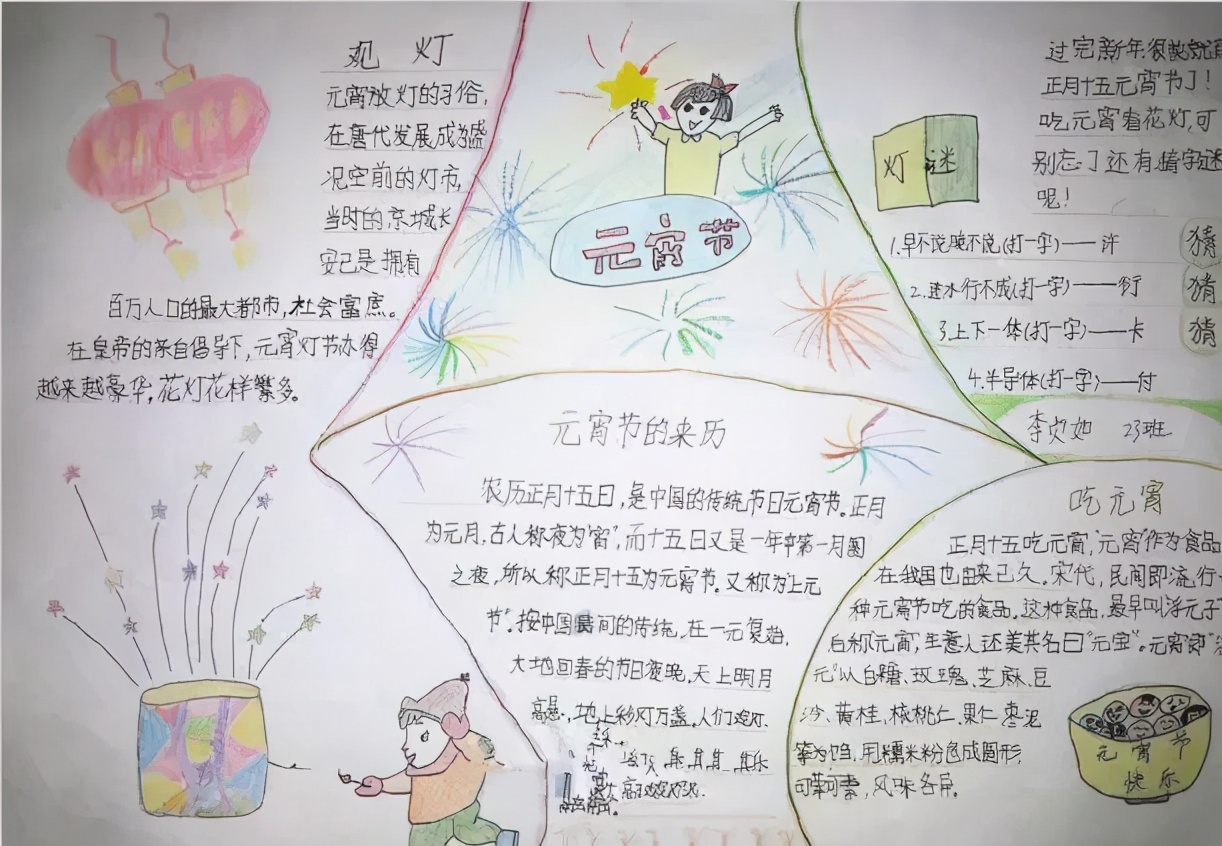 观 灯
元宵放灯的习俗，
在唐代发展成为盛
况空前的灯市，
当时的京城长
安已是拥有
百万人口的最大都市，社会富庶。
在皇帝的亲自倡导下，元宵灯节办得
越来越豪华，花灯花样繁多。
元宵节
灯 谜
过完新年很快就
正月十五元宵节了！
吃元宵看花灯，可
别忘了还有猜字谜
呢！
1.早不说晚不说(打一字)——许
2.进水行不成(打一字)——衍
3.上下一体(打一字)——卡
4.半导体(打一字)——付
猜
猜
猜
李 如 23班
元宵节的来历
农历正月十五日，是中国的传统节日元宵节。正月
为元月，古人称夜为"宵"，而十五日又是一年中第一月圆
之夜，所以称正月十五为元宵节。又称为"上元
节"。按中国民间的传统，在一元复始，
大地回春的节日夜晚，天上明月
高悬，地上彩灯万盏，人们
吃元宵
正月十五吃元宵，"元宵"作为食品
在我国也由来已久。宋代，民间即流行
种元宵节吃的食品。这种食品，最早叫浮元子
后称"元宵"，生意人还美其名曰"元宝"。元宵即"
元"以白糖、玫瑰、芝麻、豆
沙、黄桂、核桃仁、果仁、枣泥
等为馅，用糯米粉包成圆形，
可荤可素，风味各异。
元宵节
快乐